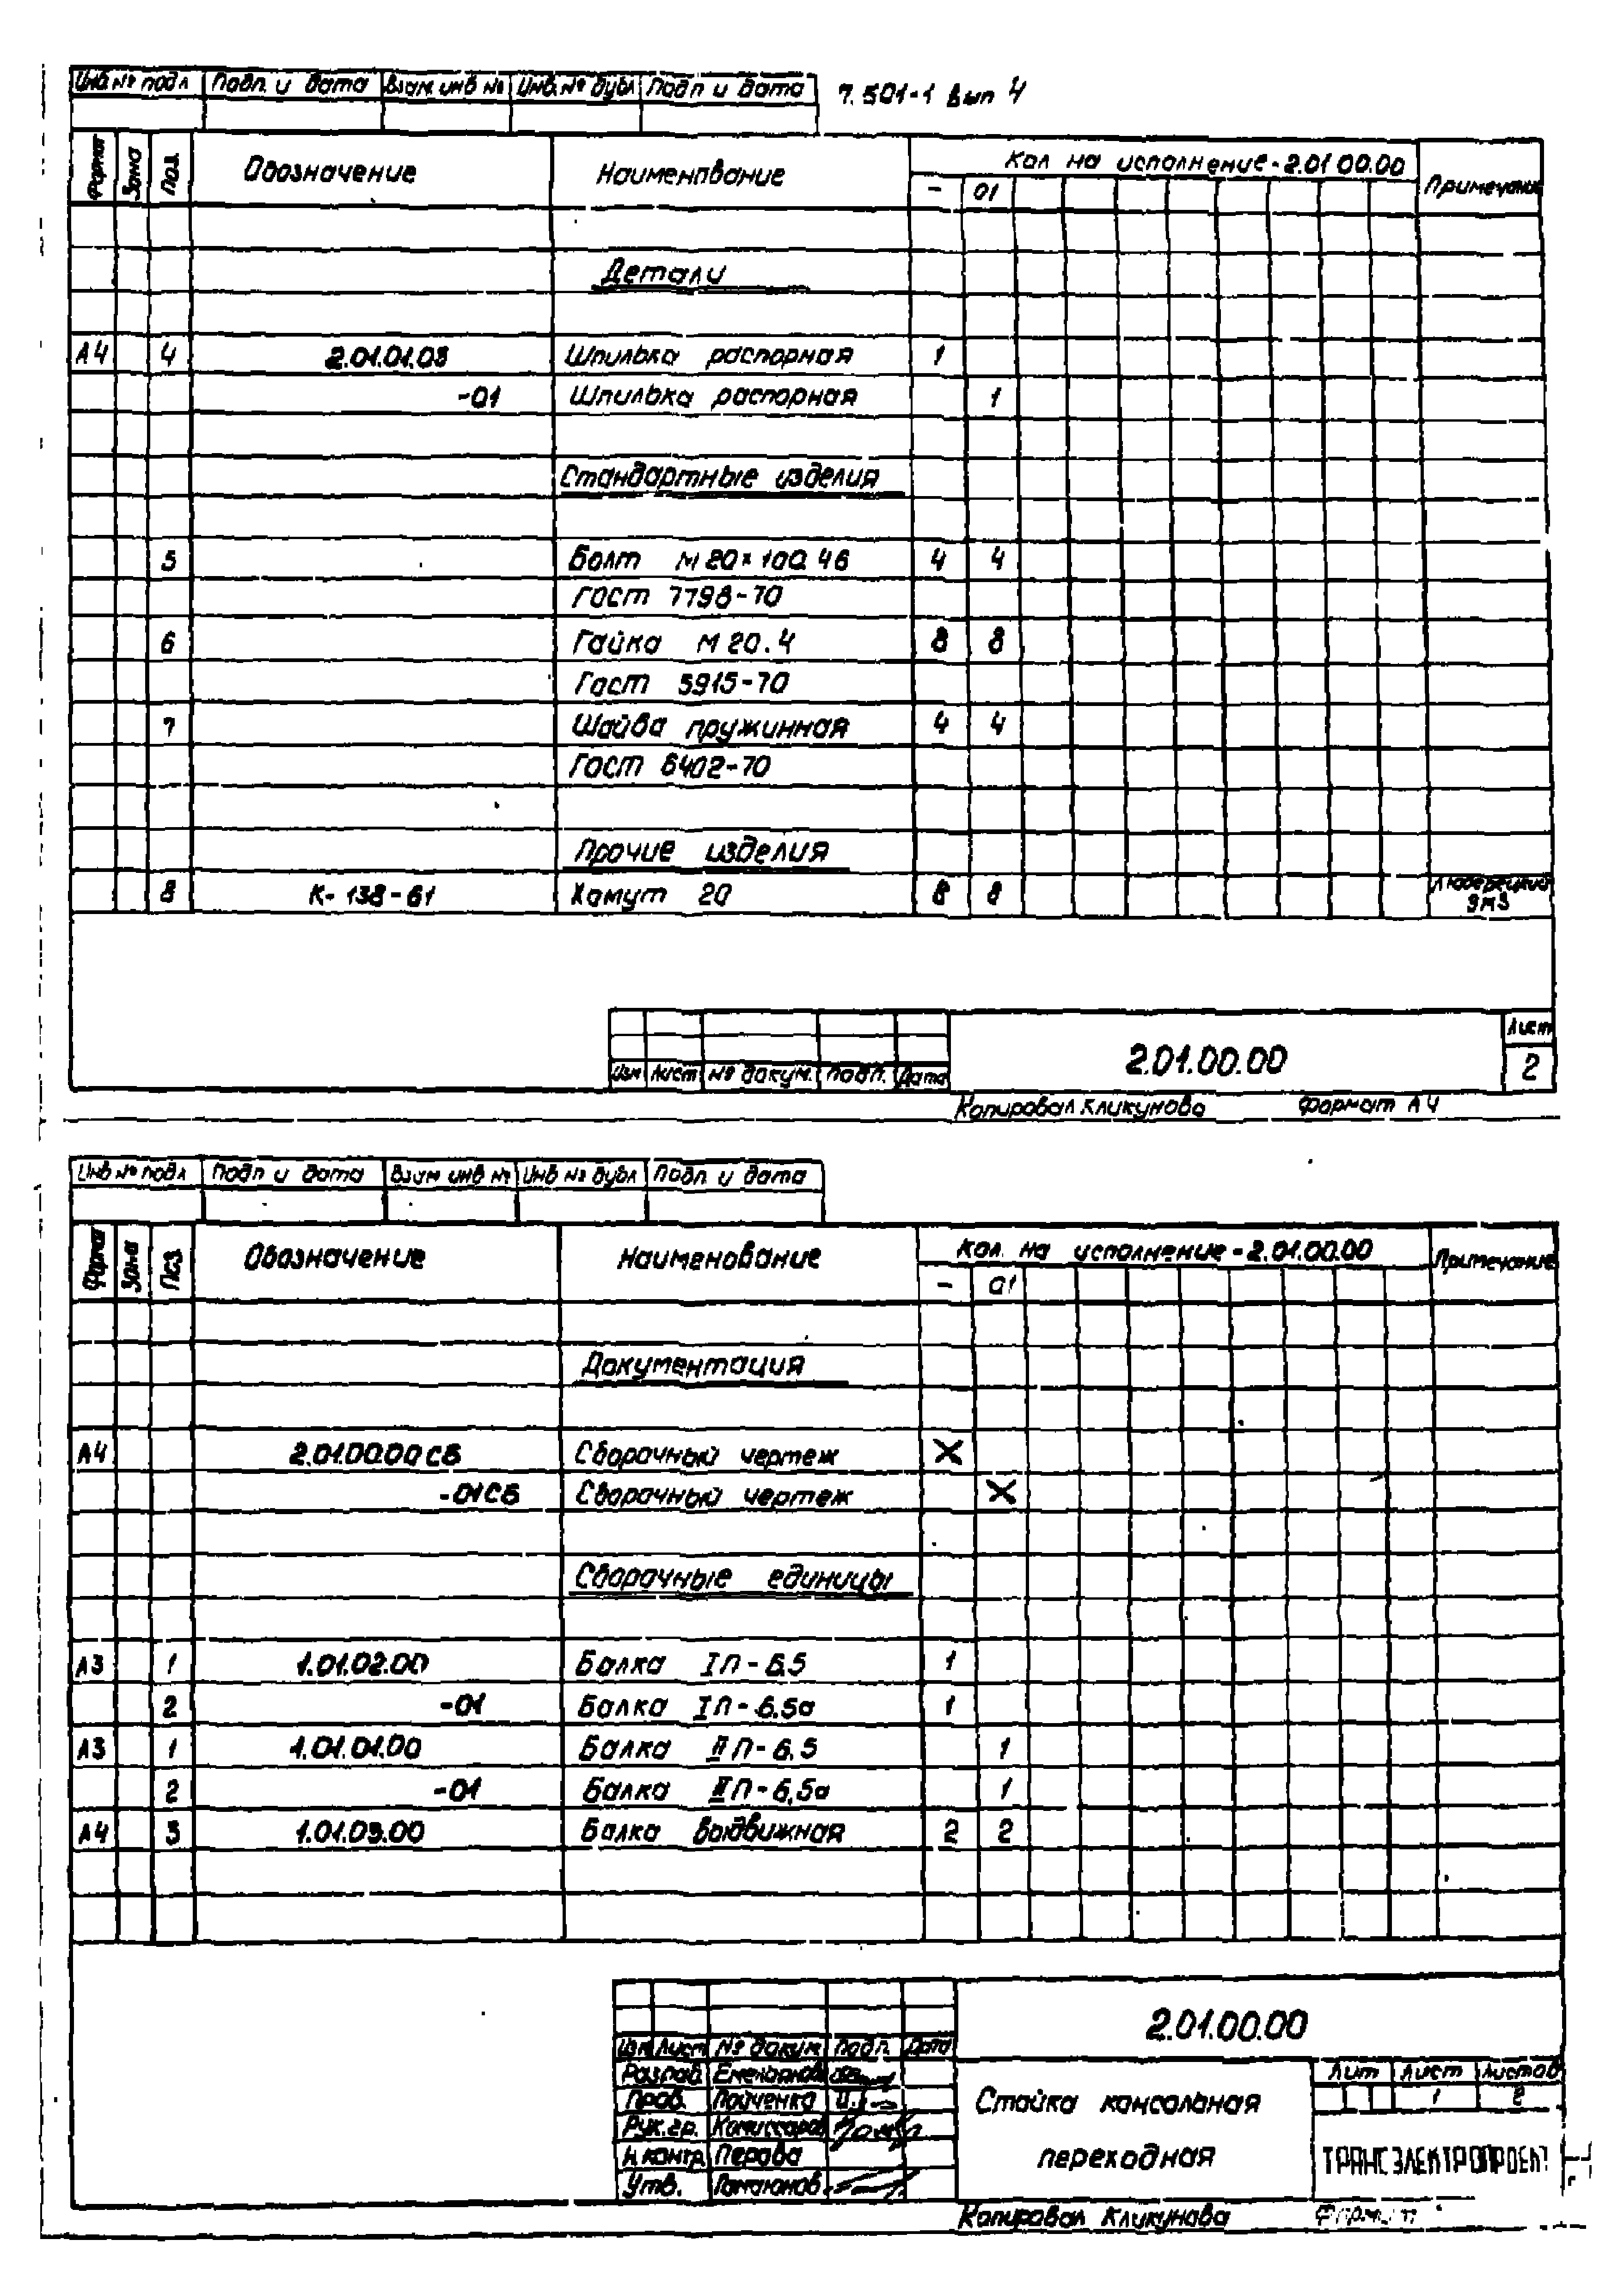 Инв № подл Подп. и дата Взам. инв № Инв. № дубл Подп и дата 7.501-1 вып 4
Формат Зона Поз. Обозначение Наименование Кол на исполнение - 2.01 00.00 Примечание
- 01
Детали
А4 4 2.01.01.03 Шпилька распорная 1
-01 Шпилька распорная 1
Стандартные изделия
5 Болт М20×100.46 4 4
Гост 7798-70
6 Гайка М20.4 8 8
Гост 5915-70
7 Шайба пружинная 4 4
Гост 6402-70
Прочие изделия
8 К-138-61 Хомут 20 8 8 Люберецкий
ЭМЗ
2.01.00.00 Лист
Изм Лист № докум. Подп. Дата 2
Копировал Кликунова Формат А4
Инв № подл Подп и дата Взам инв № Инв № дубл Подп и дата
Формат Зона Поз Обозначение Наименование Кол. на исполнение - 2.01.00.00 Примечание
- 01
Документация
А4 2.01.00.00 СБ Сборочный чертеж X
-01СБ Сборочный чертеж X
Сборочные единицы
А3 1 1.01.02.00 Балка IП-6.5 1
2 -01 Балка IП-6.5а 1
А3 1 1.01.01.00 Балка IIП-6.5 1
2 -01 Балка IIП-6,5а 1
А4 3 1.01.03.00 Балка выдвижная 2 2
2.01.00.00
Изм Лист № докум Подп. Дата
Разраб. Емельянова
Пров.
Рук.гр. Комиссаров
Н.контр Перова
Утв.
Стойка консольная
переходная
Лит Лист Листов
1 2
ТРАНСЭЛЕКТРОПРОЕКТ
Копировал Кликунова Формат